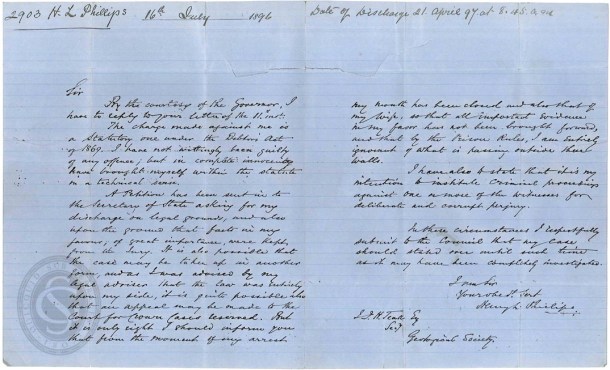 2903 H. L Phillips 16th July 1896 Date of Discharge 21. April 97 at 8.45. a.m
Sir
By the courtesy of the Governor, I
have to reply to your letter of the 11. inst.
The charge made against me is
a Statutory one under the Debtors Act
of 1869. I have not wittingly been guilty
of any offence, but in complete innocency
have brought myself within the statute
in a technical sense.
A Petition has been sent in to
the Secretary of State asking for my
discharge on legal grounds, and also
upon the ground that facts in my
favour, of great importance, were kept
from the Jury. It is also possible that
the case may be taken up in another
form, and as I was advised by my
legal adviser that the law was entirely
upon my side, it is quite possible also
that an appeal may be made to the
Court for Crown Cases reserved. But
it is only right I should inform you
that from the moment of my arrest
my mouth has been closed and also that of
my wife, so that all important Evidence
in my favor has not been brought forward,
and that by the Prison Rules, I am entirely
ignorant of what is passing outside these
walls.
I have also to state that it is my
intention to institute Criminal proceedings
against one or more of the witnesses for
deliberate and corrupt perjury.
In these circumstances I respectfully
submit to the Council that my case
should stand over until such time
as it may have been completely investigated.
I am Sir
Your obt. Servt
Hugh Phillips
J. J. H. Teall Esq
Secy
Geological Society.